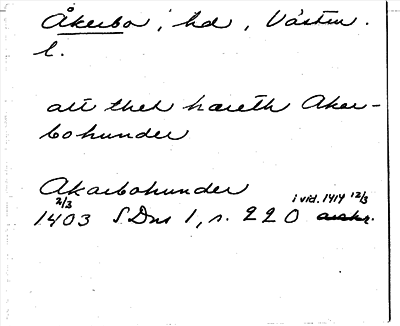 Åkerbo, hd, Västm.
l.
att thet häreth Aker-
bohunder
Akarbohunder
2/3 i vid. 1414 12/3
1403 SDns 1, s. 220 avskr.